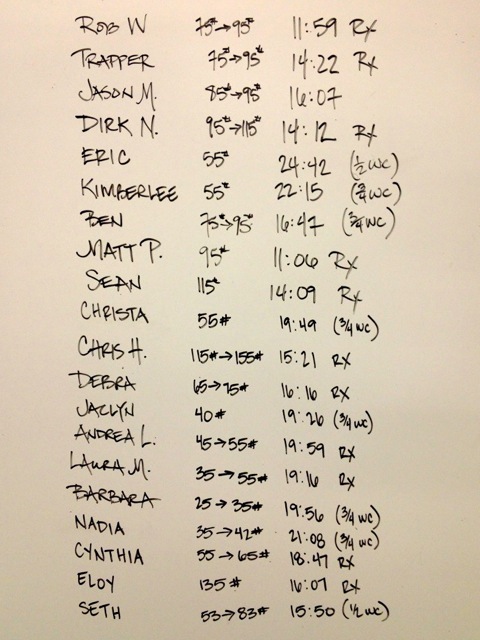 ROB W 75# → 95# 11:59 RX
TRAPPER 75# → 95# 14:22 RX
JASON M. 85# → 95# 16:07
DIRK N. 95# → 115# 14:12 RX
ERIC 55# 24:42 (1/2 WC)
KIMBERLEE 55# 22:15 (3/4 WC)
BEN 75# → 95# 16:47 (3/4 WC)
MATT P. 95# 11:06 RX
SEAN 115# 14:09 RX
CHRISTA 55# 19:49 (3/4 WC)
CHRIS H. 115# → 155# 15:21 RX
DEBRA 65 → 75# 16:16 RX
JACLYN 40# 19:26 (3/4 WC)
ANDREA L. 45 → 55# 19:59 RX
LAURA M. 35 → 55# 19:16 RX
BARBARA 25 → 35# 19:56 (3/4 WC)
NADIA 35 → 42# 21:08 (3/4 WC)
CYNTHIA 55 → 65# 18:47 RX
ELOY 135# 16:07 RX
SETH 53 → 83# 15:50 (1/2 WC)